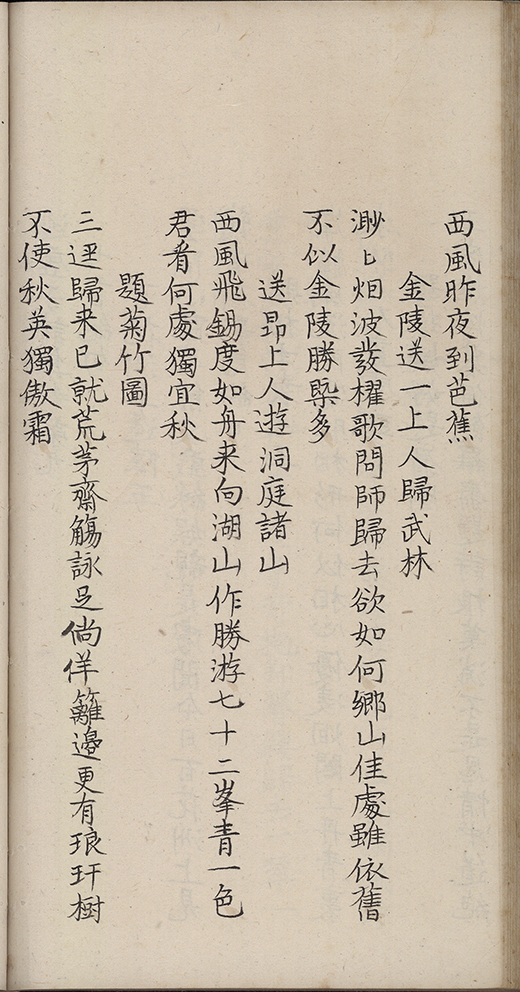 西風昨夜到芭蕉
金陵送一上人歸武林
渺〻烟波發櫂歌問師歸去欲如何鄉山佳處雖依舊
不似金陵勝槩多
送昻上人遊洞庭諸山
西風飛錫度如舟来向湖山作勝游七十二峯青一色
君看何處獨宜秋
題菊竹圖
三逕歸来已就荒茅齋觴詠足倘佯籬邊更有琅玕樹
不使秋英獨傲霜